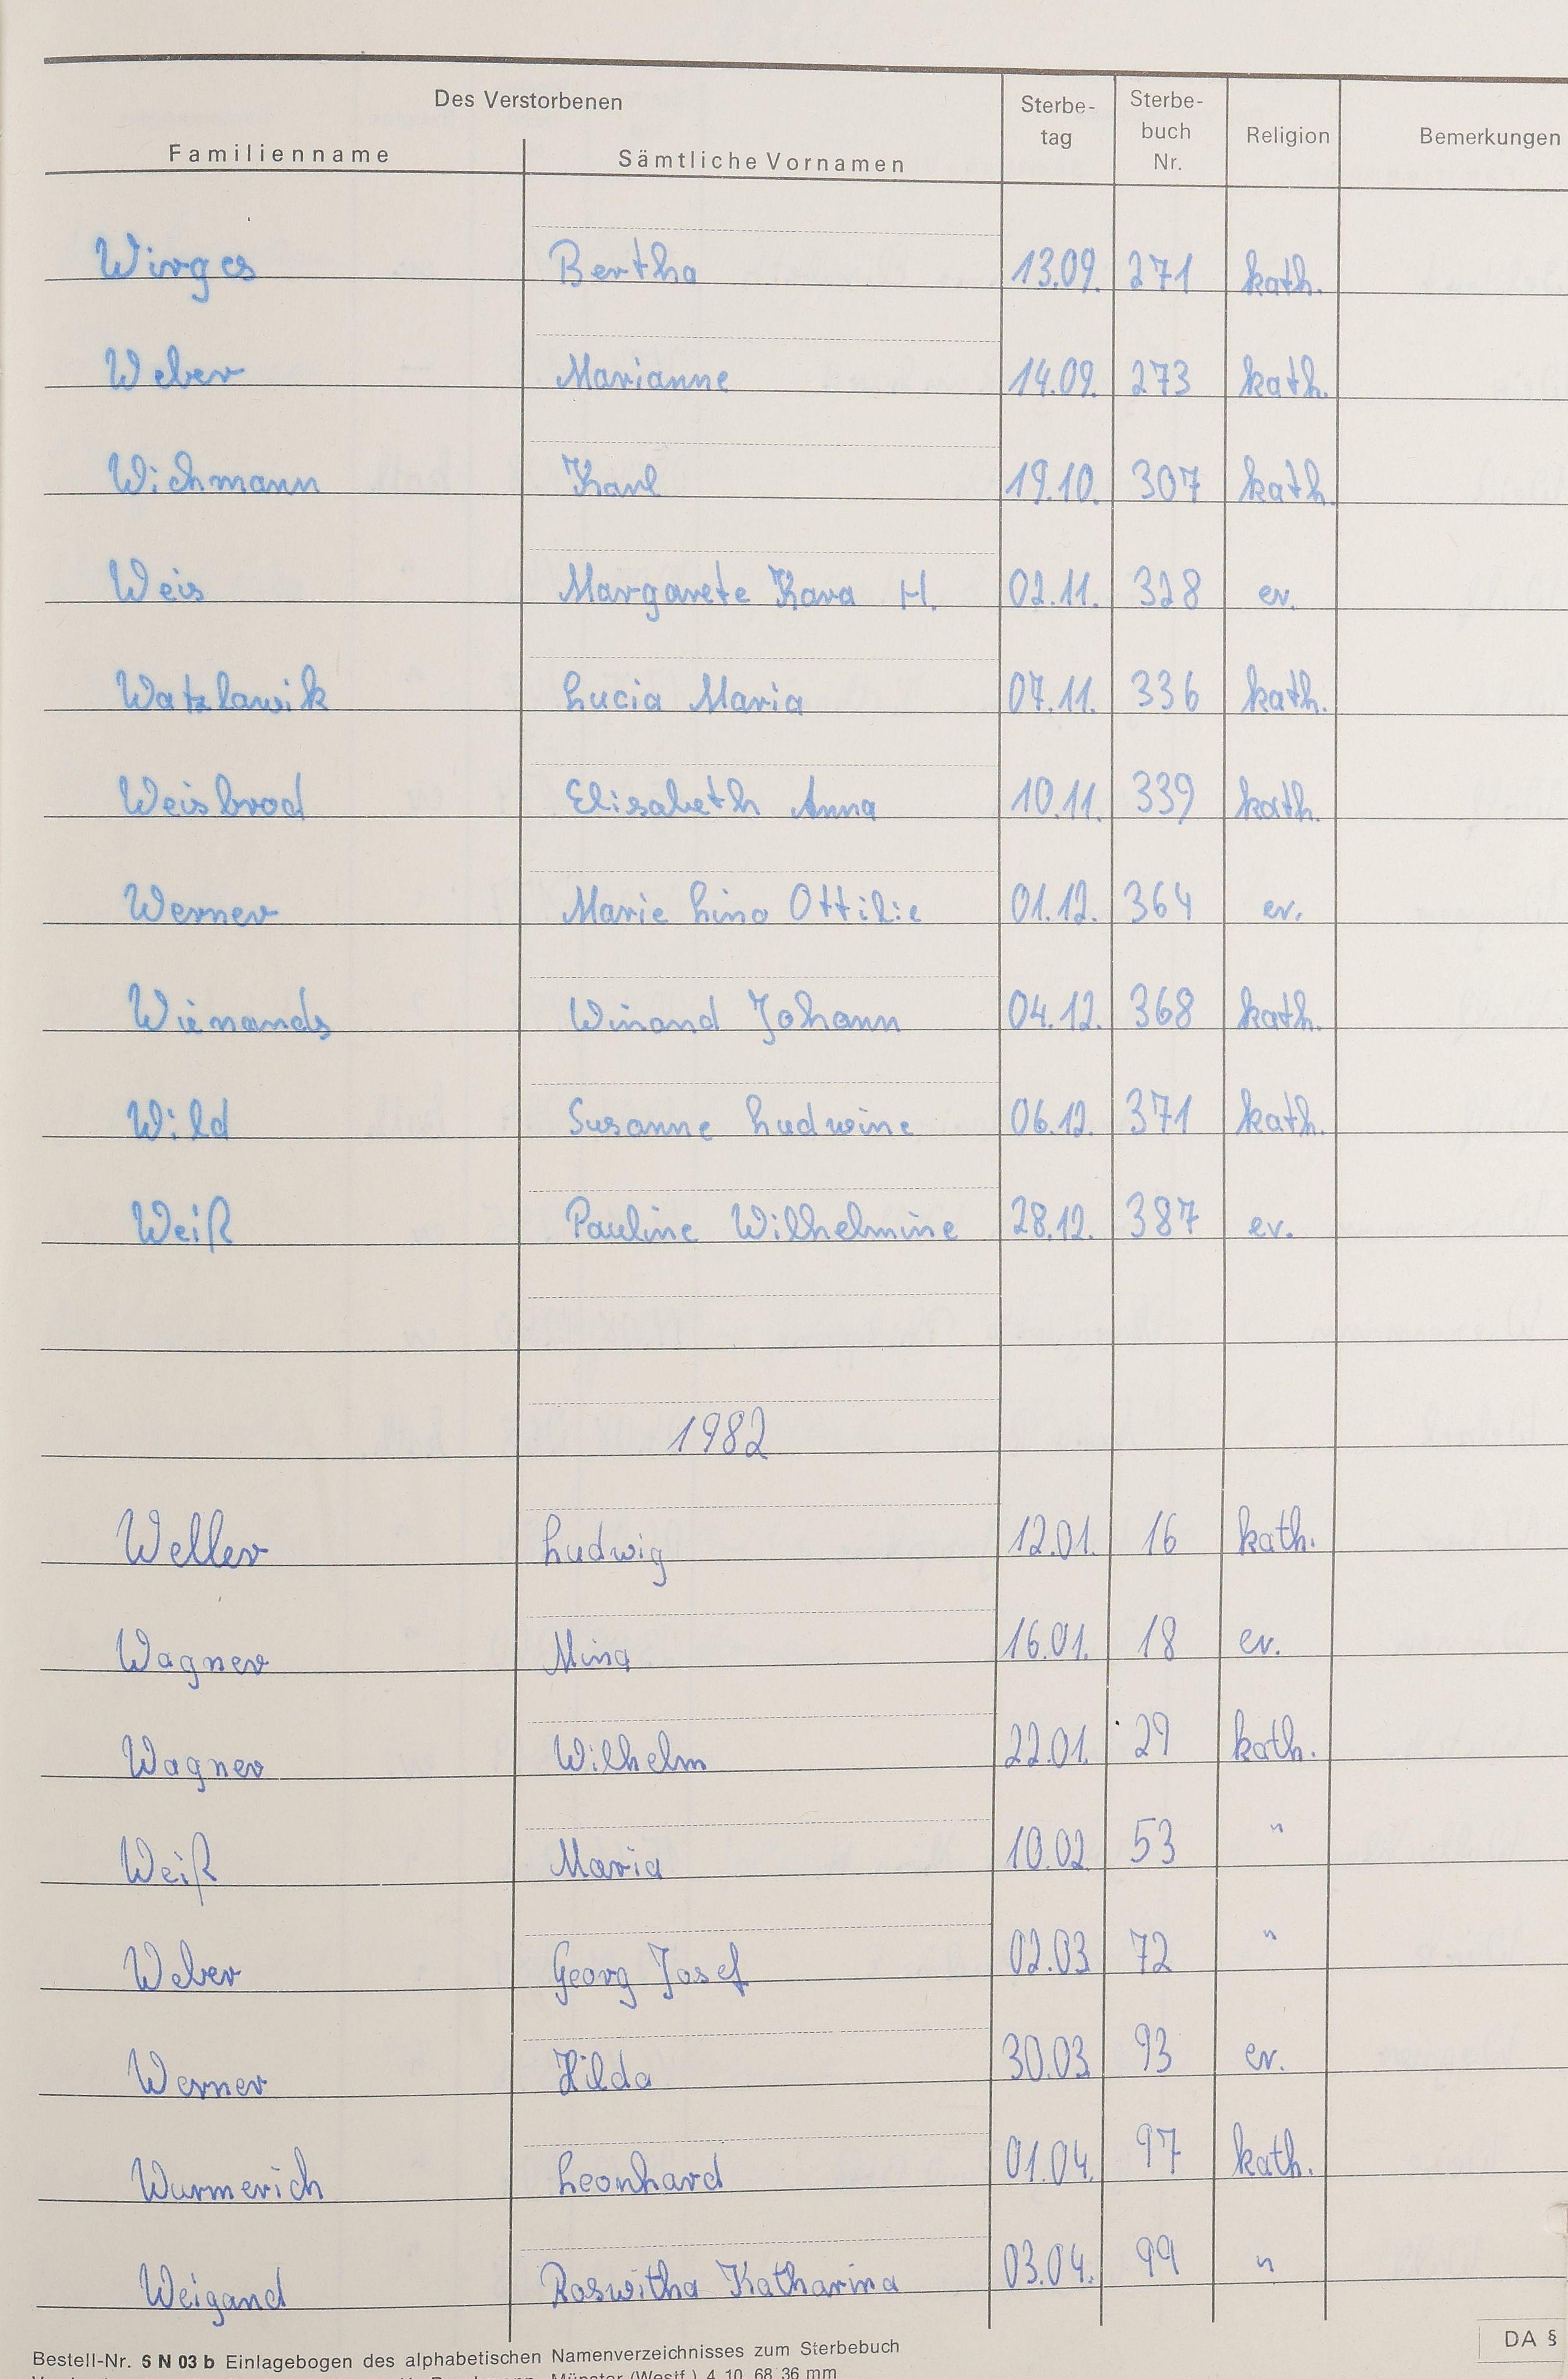 Des Verstorbenen
Familienname Sämtliche Vornamen Sterbe-tag Sterbe-buch Nr. Religion Bemerkungen
Wirges Bertha 13.09. 271 kath.
Weber Marianne 14.09. 273 kath.
Wichmann Karl 19.10. 307 kath.
Weis Margarete Kara H. 02.11. 328 ev.
Watzlawik Lucia Maria 07.11. 336 kath.
Weisbrod Elisabeth Anna 10.11. 339 kath.
Werner Marie Lina Ottilie 01.12. 364 ev.
Wienands Winand Johann 04.12. 368 kath.
Wild Susanne Ludwine 06.12. 371 kath.
Weiß Pauline Wilhelmine 28.12. 387 ev.
1982
Weller Ludwig 12.01. 16 kath.
Wagner Mina 16.01. 18 ev.
Wagner Wilhelm 22.01. 29 kath.
Weiß Maria 10.02 53 "
Weber Georg Josef 02.03 72 "
Werner Hilda 30.03 93 ev.
Wurmerich Leonhard 01.04. 97 kath.
Weigand Roswitha Katharina 03.04. 99 "
DA §
Bestell-Nr. 6 N 03 b Einlagebogen des alphabetischen Namenverzeichnisses zum Sterbebuch
Münster (Westf.) 4 10 68 36 mm